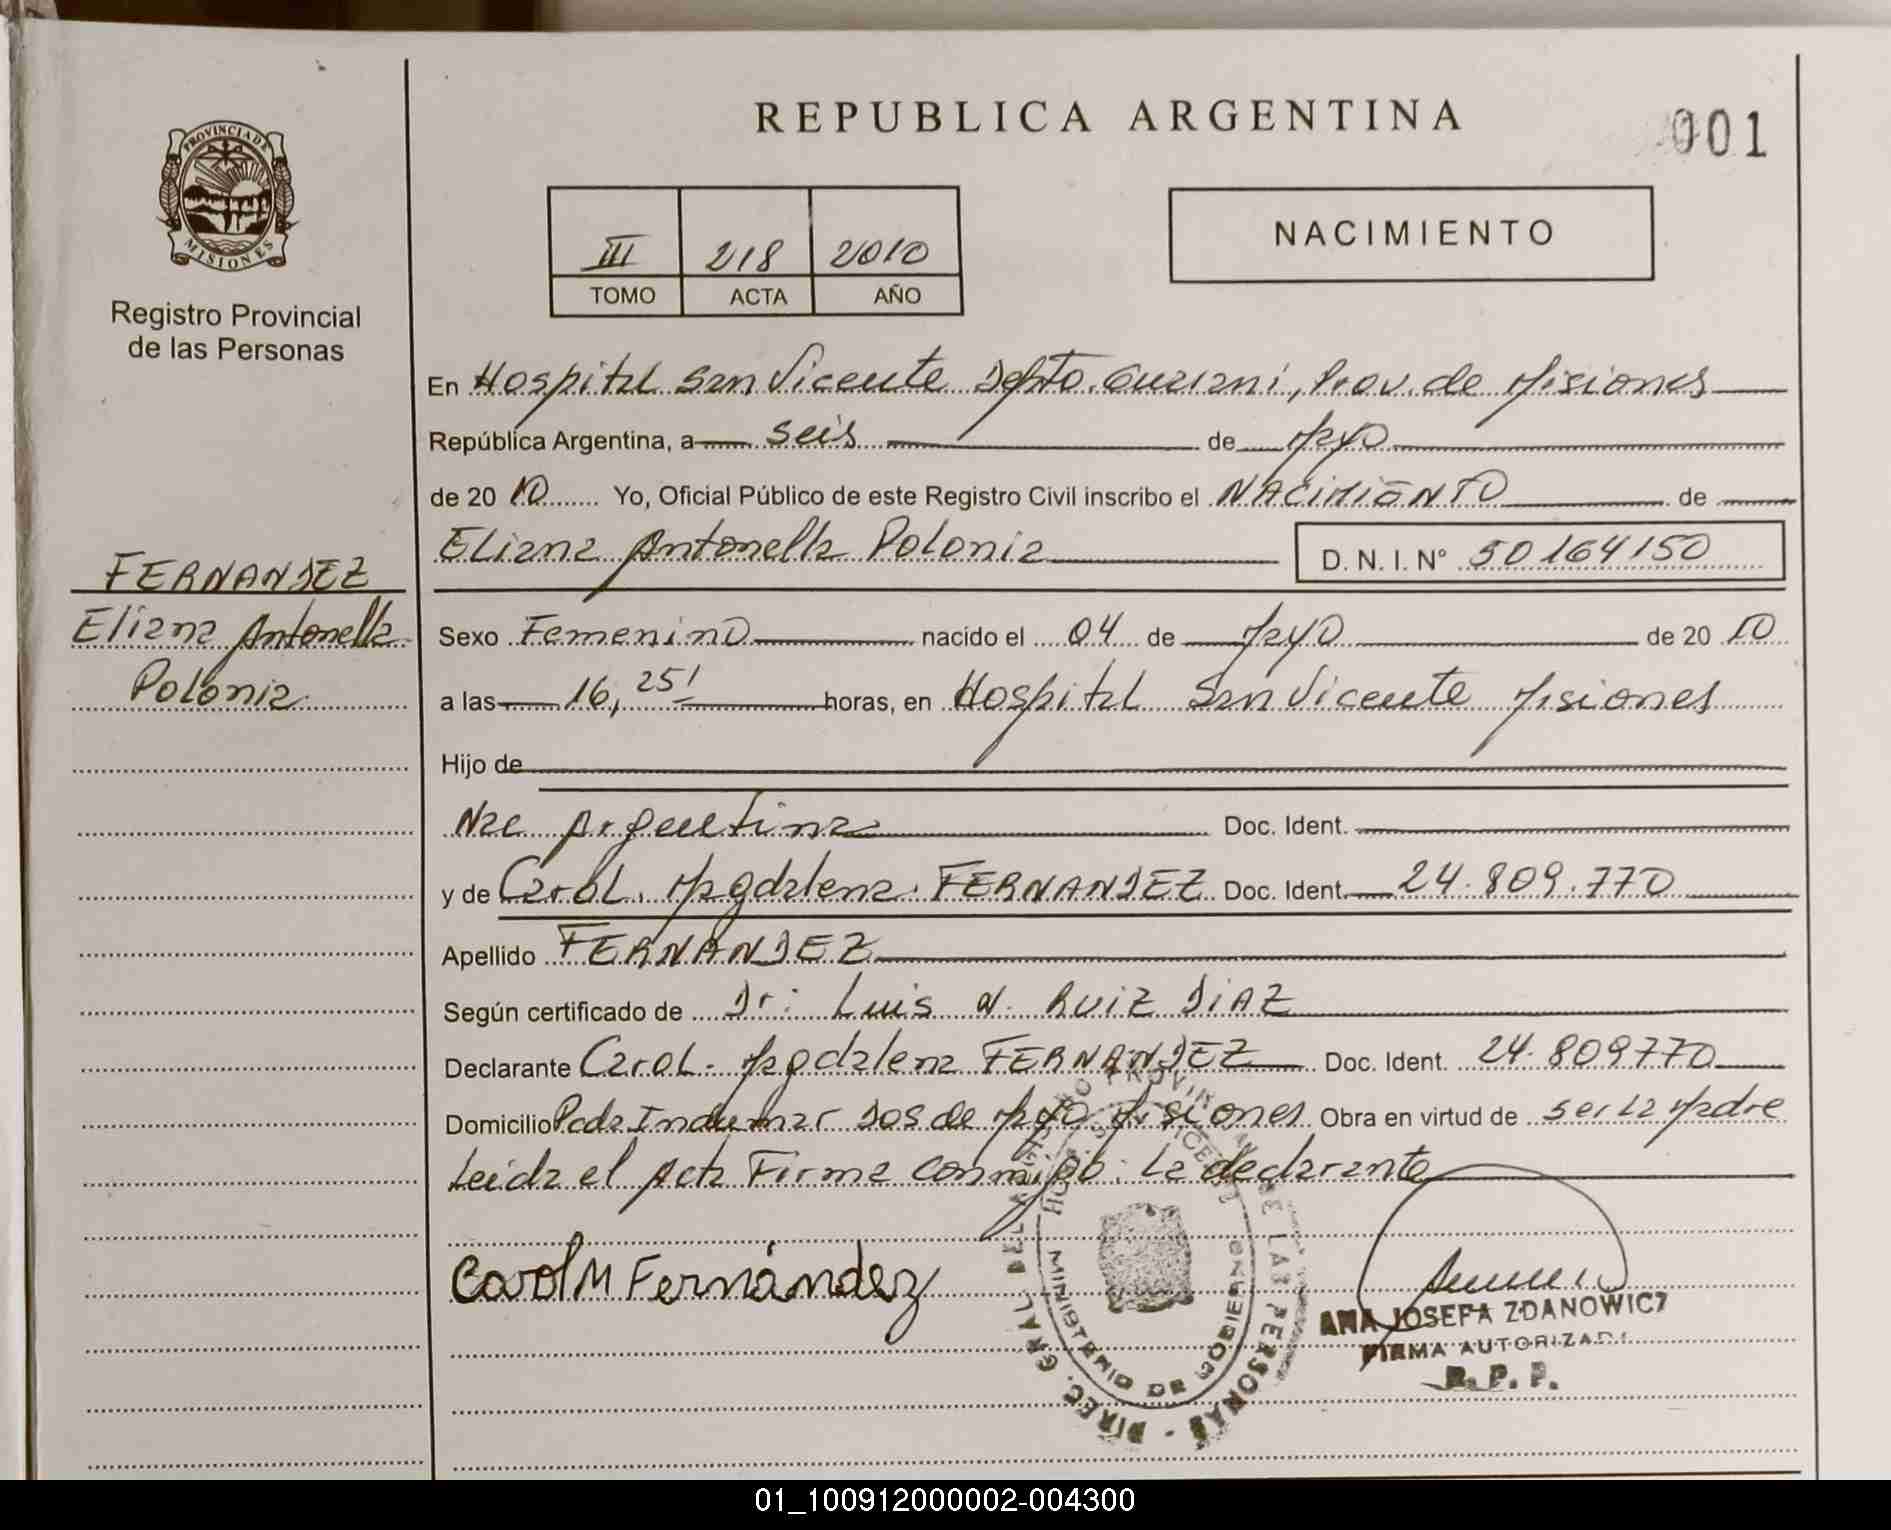 REPUBLICA ARGENTINA
001
PROVINCIA DE
MISIONES
Registro Provincial
de las Personas
III 218 2010
TOMO ACTA AÑO
NACIMIENTO
En Hospital San Vicente Dpto. Guarani, Prov. de Misiones
República Argentina, a seis de Mayo
de 20 10 Yo, Oficial Público de este Registro Civil inscribo el NACIMIENTO de
Eliana Antonella Polonia D. N. I. N° 50164150
FERNANDEZ
Eliana Antonella
Polonia
Sexo Femenino nacido el 04 de Mayo de 20 10
a las 16, 25' horas, en Hospital San Vicente Misiones
Hijo de
Nac Argentina Doc. Ident.
y de Carol. Magdalena. FERNANDEZ Doc. Ident. 24.809.770
Apellido FERNANDEZ
Según certificado de Dr: Luis A. RUIZ DIAZ
Declarante Carol. Magdalena FERNANDEZ Doc. Ident. 24.809770
Domicilio Pda Indumar Dos de Mayo Misiones Obra en virtud de ser la Madre
Leida el Acta Firma conmigo: La declarante
Carol M Fernández
DIREC. GRAL. DEL REGISTRO PROVINCIAL DE LAS PERSONAS
MINISTERIO DE GOBIERNO
ANA JOSEFA ZDANOWICZ
FIRMA AUTORIZADA
R. P. P.
01_100912000002-004300